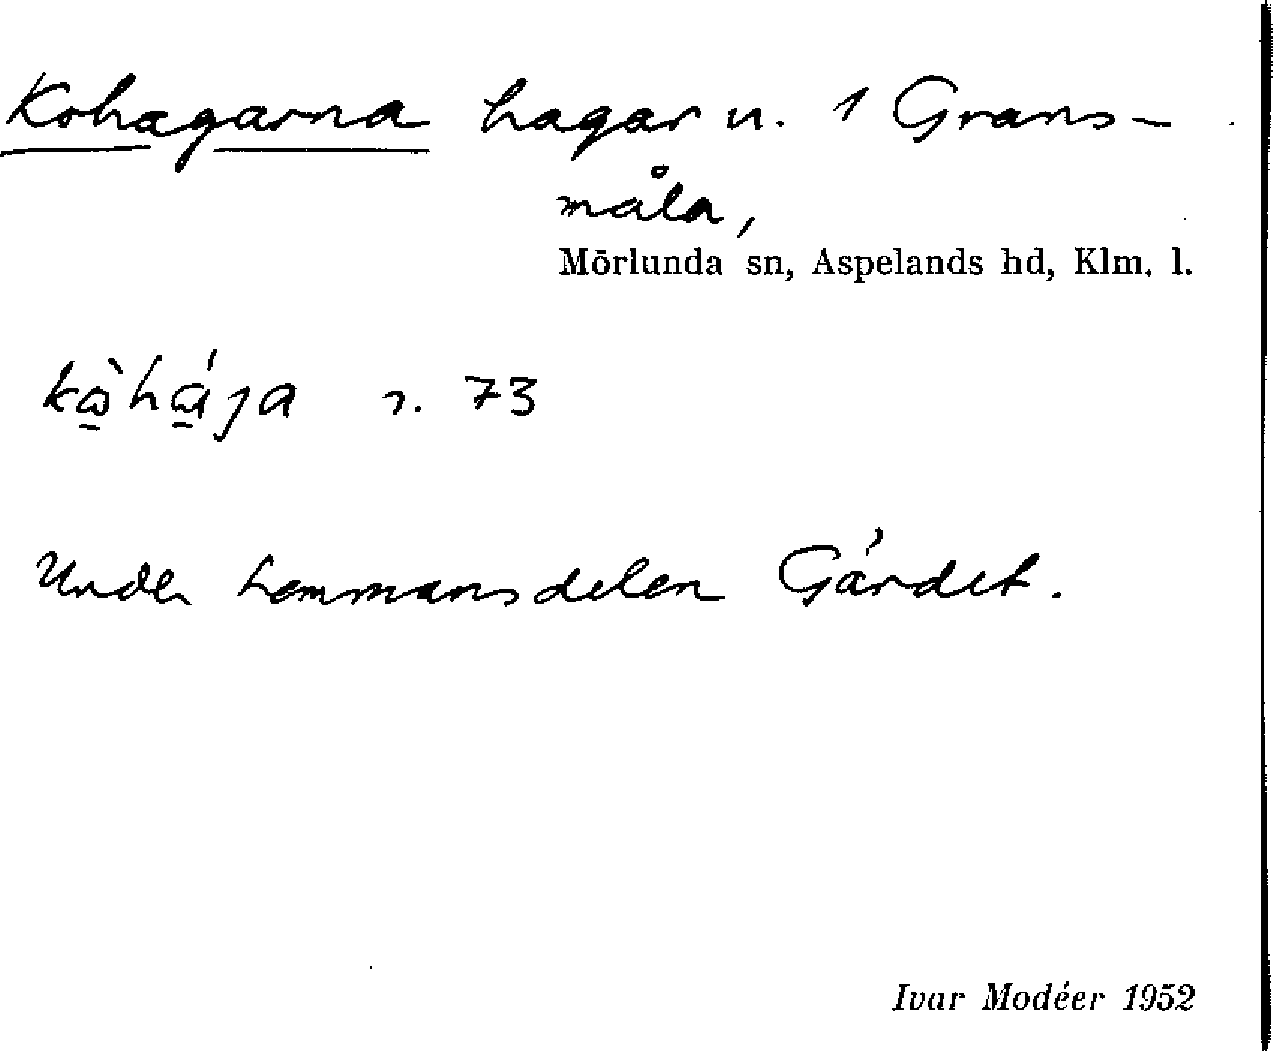 Kohagarna hagar u. 1 Grans-
måla,
Mörlunda sn, Aspelands hd, Klm. l.
r. 73
Under hemmansdelen Gärdet.
Ivar Modéer 1952